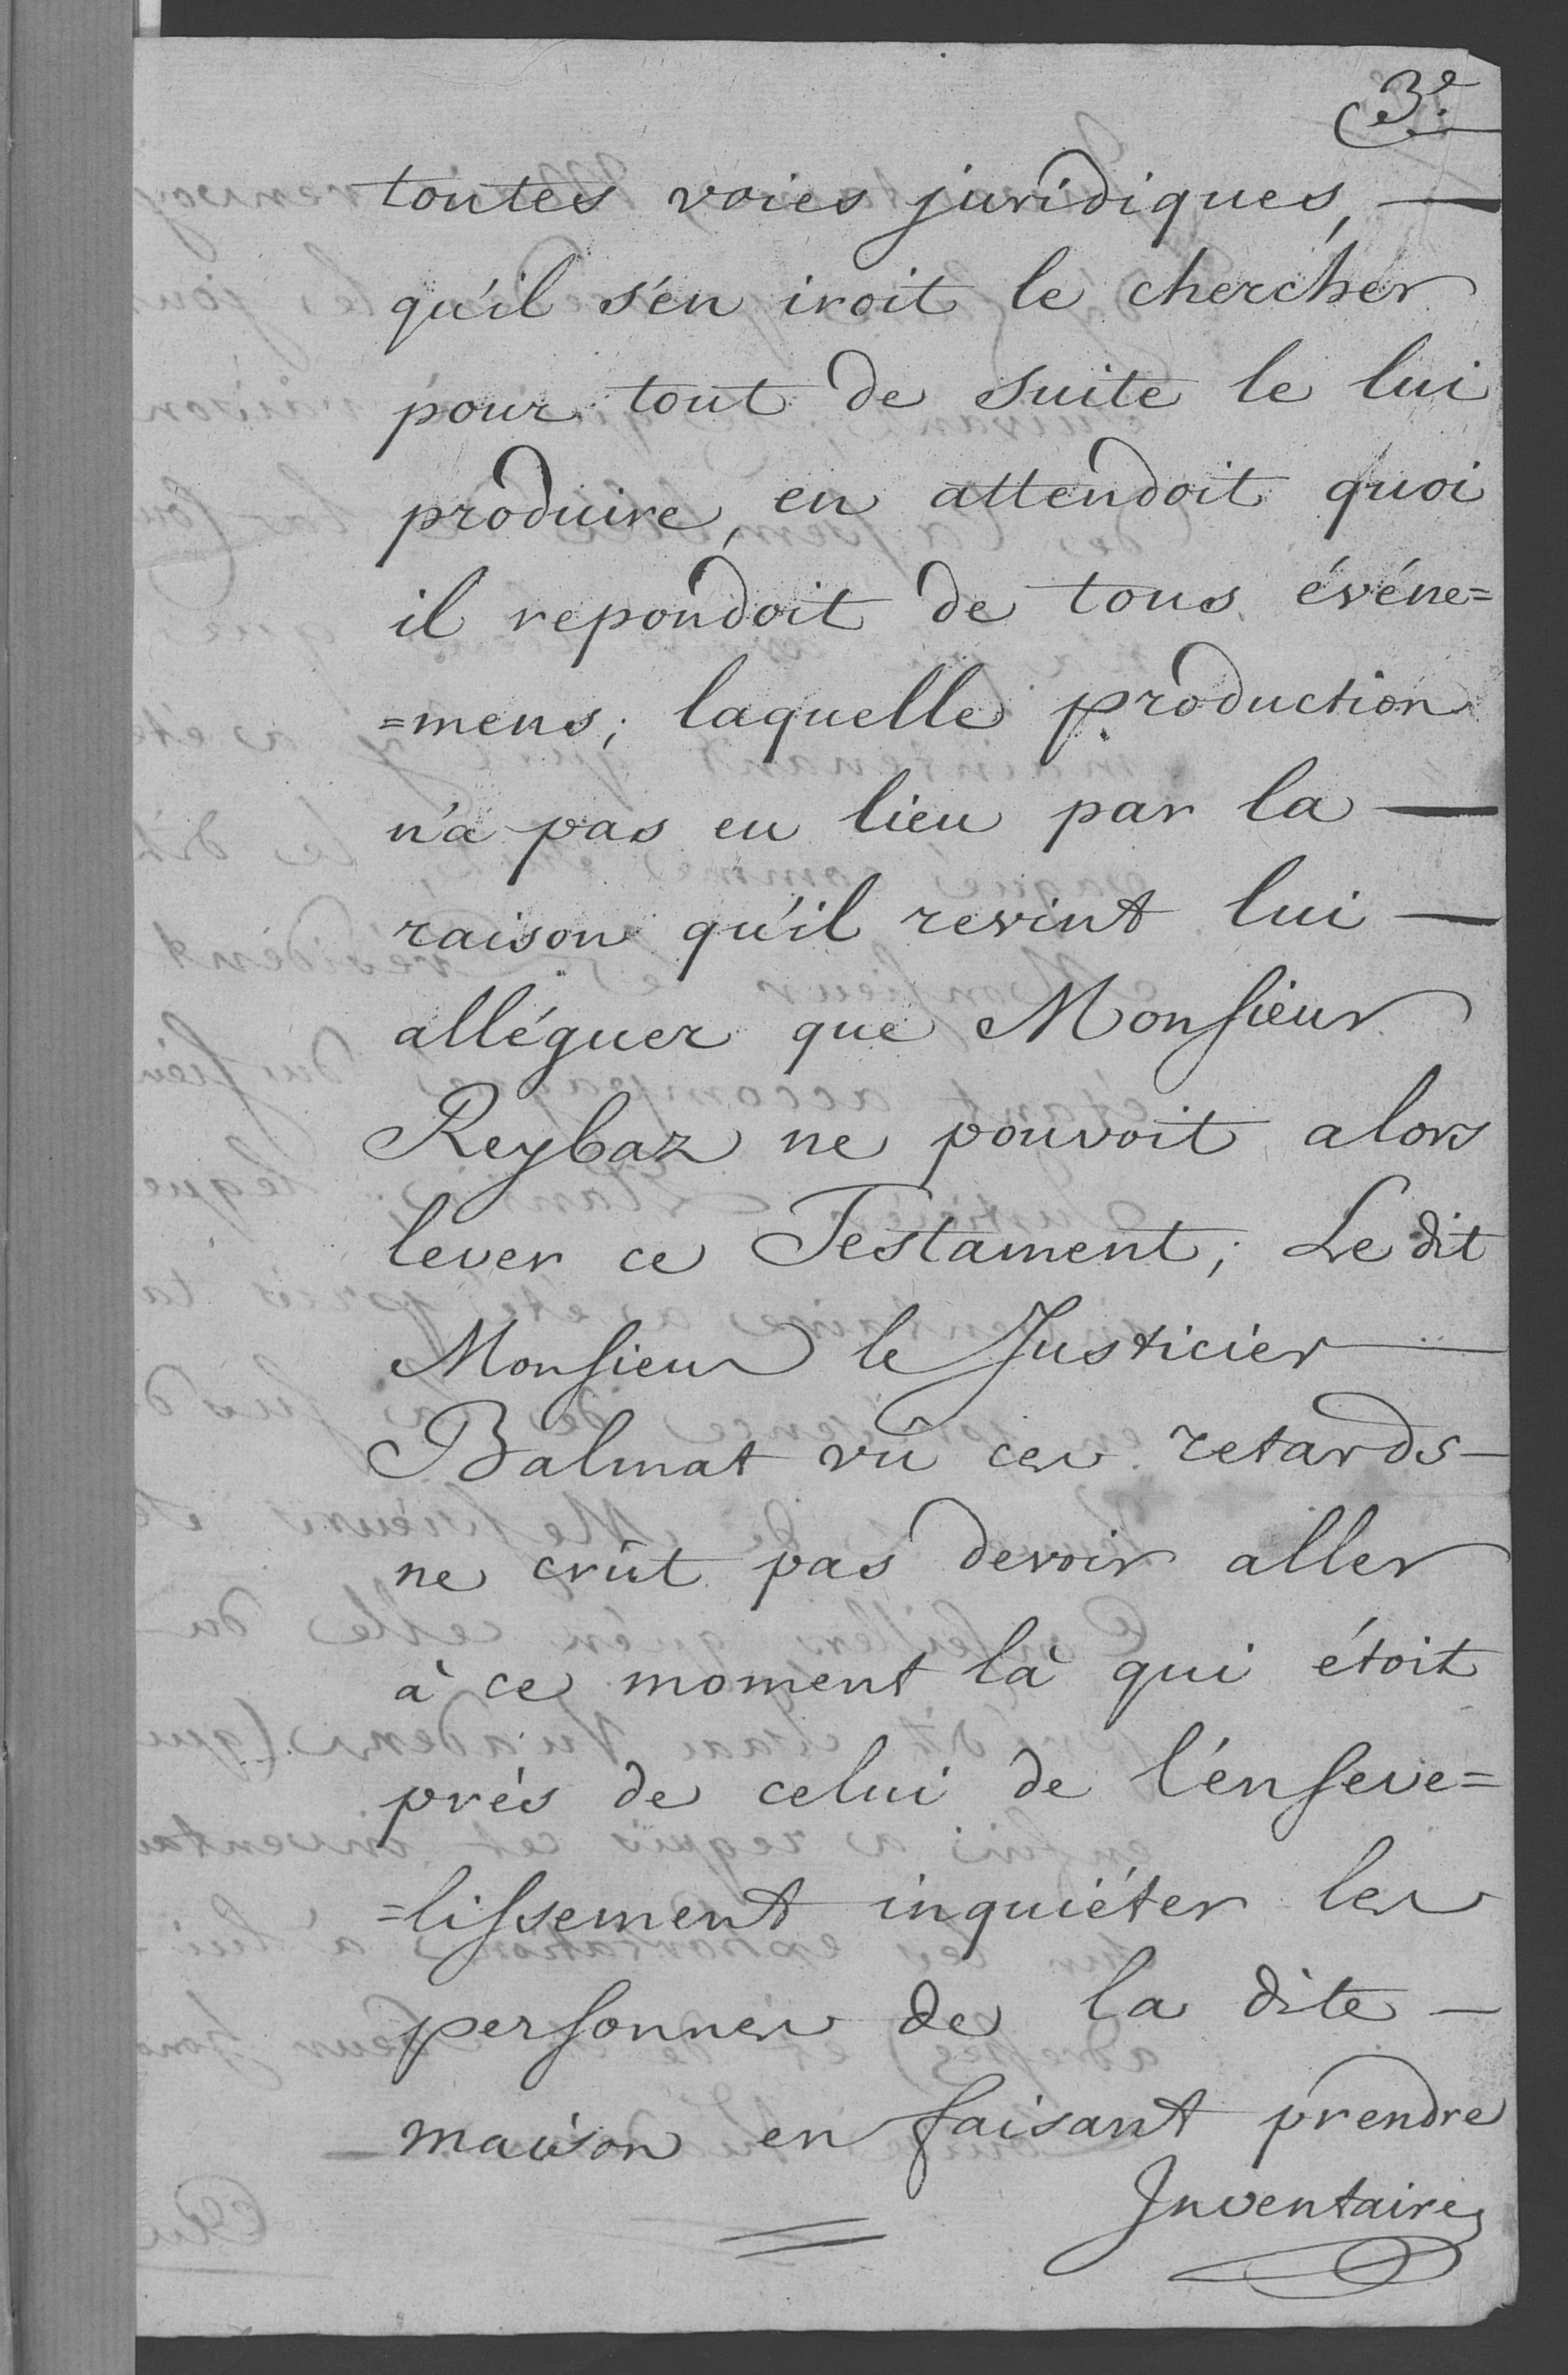 3.e
toutes voies juridiques, —
qu'il s'en iroit le chercher
pour tout de suite le lui
produire, en attendoit quoi
il repondoit de tous événe=
=mens; laquelle production
n'a pas eu lieu par la —
raison qu'il revint lui —
alléguer que Monsieur
Reybaz ne pouvoit alors
lever ce Testament; Le dit
Monsieur le Justicier
Balmat vû ces retards —
ne crût pas devoir aller
à ce moment là qui étoit
près de celui de l'enseve=
=lissement inquiéter les
personnes de la dite —
maison en faisant prendre
Inventaire,